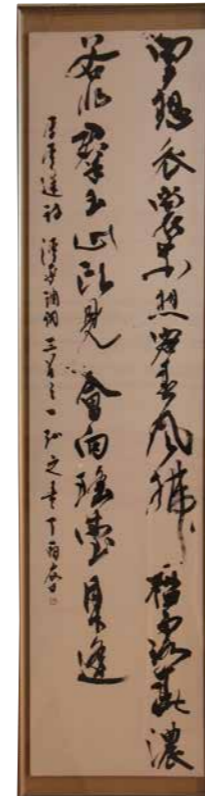 雲想衣裳花想容春風拂檻露華濃
若非群玉山頭見會向瑤臺月下逢
李白詩清平調詞三首之一